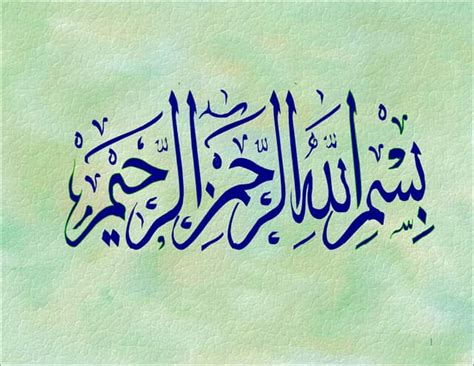 بِسْمِ اللَّهِ الرَّحْمَٰنِ الرَّحِيمِ
1